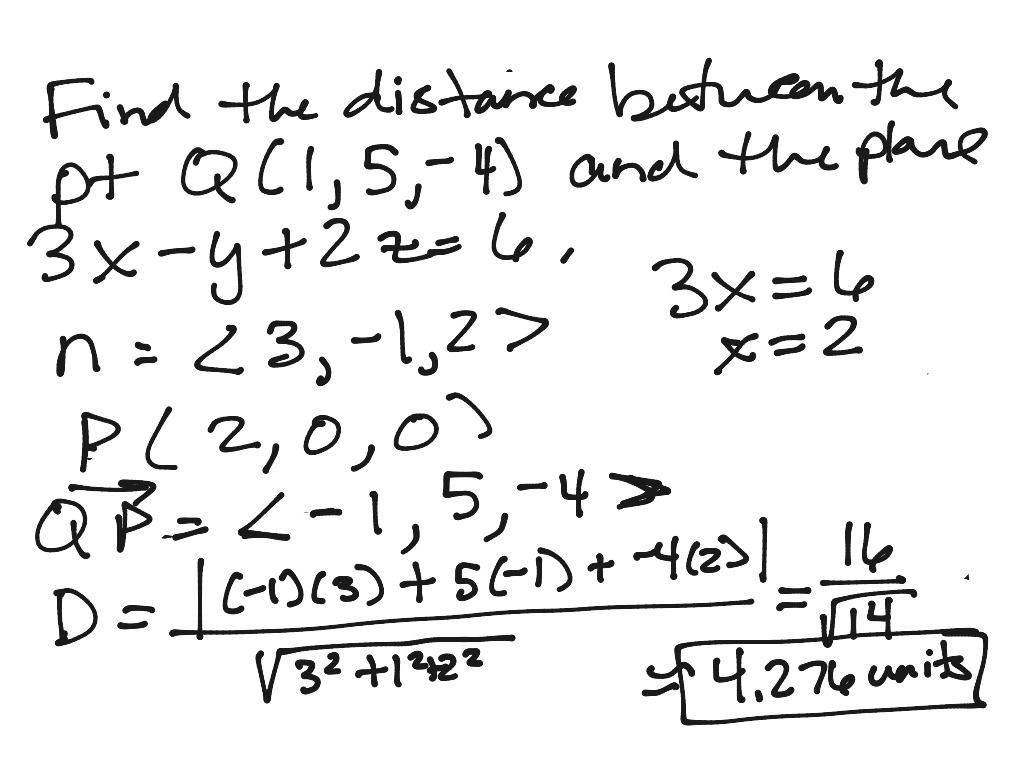 Find the distance between the
pt Q(1, 5, -4) and the plane
3x - y + 2z = 6.
3x = 6
x = 2
n = <3, -1, 2>
P(2, 0, 0)
QP = <-1, 5, -4>
D = |(-1)(3) + 5(-1) + -4(2)| / √(3² + 1² + 2²) = 16 / √14
≈ 4.276 units